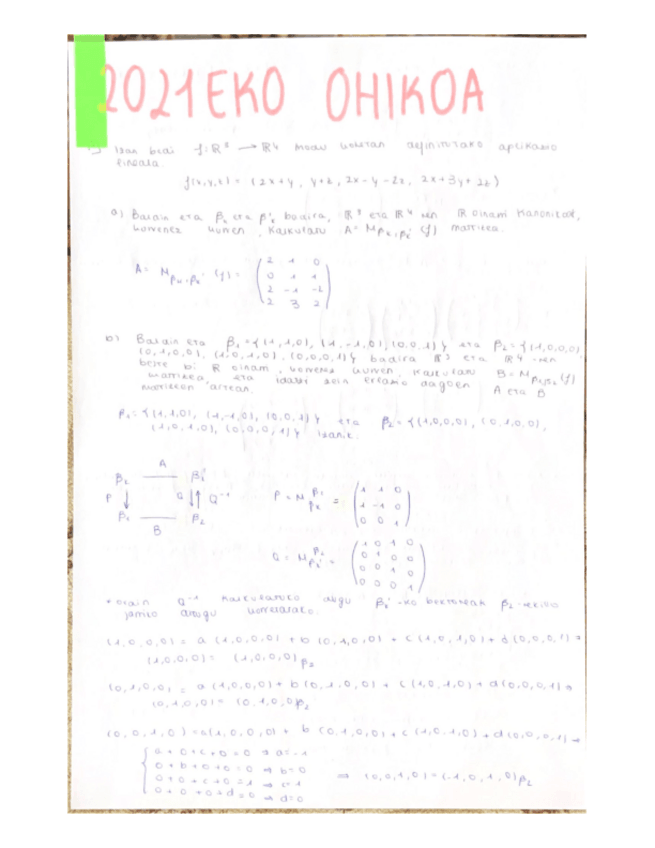 2021EKO OHIKOA
Izan bedi f: ℝ³ → ℝ⁴ modu honetan definitutako aplikazio
lineala.
f(x,y,z) = (2x+y, y+z, 2x-y-2z, 2x+3y+2z)
a) Baldin eta βk eta β'k badira, ℝ³ eta ℝ⁴-ren ℝ oinarri kanonikoak,
hurrenez hurren, kalkulatu A = Mβk,βk' (f) matrizea.
A = Mβk,βk' (f) = ( 2 1 0
0 1 1
2 -1 -2
2 3 2 )
b) Baldin eta β1 = {(1,1,0), (1,-1,0), (0,0,1)} eta β2 = {(1,0,0,0)
(0,1,0,0), (1,0,1,0), (0,0,0,1)} badira ℝ³ eta ℝ⁴-ren
beste bi ℝ oinarri, hurrenez hurren, kalkulatu B = Mβ1,β2 (f)
matrizea, eta idatzi zein erlazio dagoen A eta B
matrizeen artean.
β1 = {(1,1,0), (1,-1,0), (0,0,1)} eta β2 = {(1,0,0,0), (0,1,0,0),
(1,0,1,0), (0,0,0,1)} izanik.
A
P Q Q⁻¹
β1 β2
B
P = M = ( 1 1 0
1 -1 0
0 0 1 )
Q = M = ( 1 0 1 0
0 1 0 0
0 0 1 0
0 0 0 1 )
Q⁻¹ kalkulatuko dugu βk'-ko bektoreak β2-rekiko
jarriko ditugu horretarako.
(1,0,0,0) = a(1,0,0,0) + b(0,1,0,0) + c(1,0,1,0) + d(0,0,0,1) ⇒
(1,0,0,0) = (1,0,0,0)β2
(0,1,0,0) = a(1,0,0,0) + b(0,1,0,0) + c(1,0,1,0) + d(0,0,0,1) ⇒
(0,1,0,0) = (0,1,0,0)β2
(0,0,1,0) = a(1,0,0,0) + b(0,1,0,0) + c(1,0,1,0) + d(0,0,0,1) ⇒
a+0+c+0=0 ⇒ a=-1
0+b+0+0=0 ⇒ b=0
0+0+c+0=1 ⇒ c=1
0+0+0+d=0 ⇒ d=0
⇒ (0,0,1,0) = (-1,0,1,0)β2